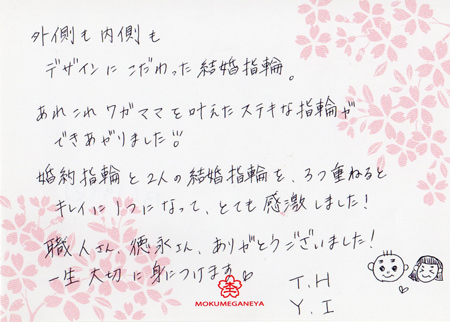 外側も内側も
デザインにこだわった結婚指輪。
あれこれワガママを叶えたステキな指輪が
できあがりました!!
婚約指輪と2人の結婚指輪を、3つ重ねると
キレイに1つになって、とても感激しました!
職人さん、徳永さん、ありがとうございました!
一生大切に身につけます♡
T.H
Y.I
MOKUMEGANEYA